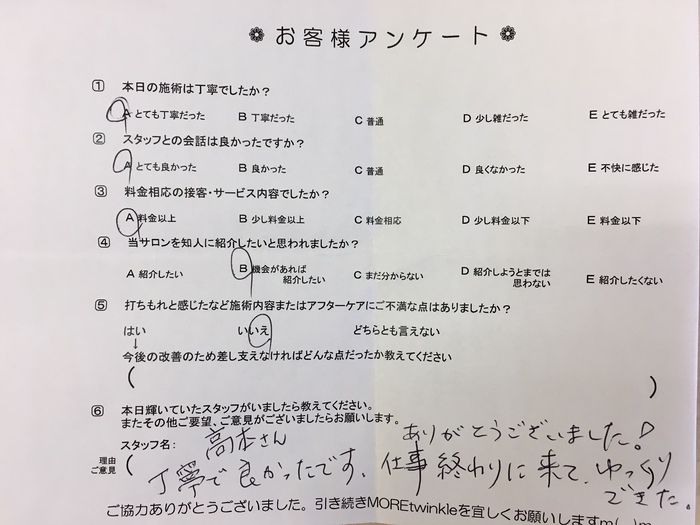 ❁ お客様アンケート ❁
① 本日の施術は丁寧でしたか？
A とても丁寧だった B 丁寧だった C 普通 D 少し雑だった E とても雑だった
② スタッフとの会話は良かったですか？
A とても良かった B 良かった C 普通 D 良くなかった E 不快に感じた
③ 料金相応の接客・サービス内容でしたか？
A 料金以上 B 少し料金以上 C 料金相応 D 少し料金以下 E 料金以下
④ 当サロンを知人に紹介したいと思われましたか？
A 紹介したい B 機会があれば紹介したい C まだ分からない D 紹介しようとまでは思わない E 紹介したくない
⑤ 打ちもれと感じたなど施術内容またはアフターケアにご不満な点はありましたか？
はい いいえ どちらとも言えない
↓
今後の改善のため差し支えなければどんな点だったか教えてください
( )
⑥ 本日輝いていたスタッフがいましたら教えてください。
またその他ご要望、ご意見がございましたらお願いします。
スタッフ名： 高本さん ありがとうございました！
理由
ご意見 ( 丁寧で良かったです、仕事終わりに来て、ゆっくり
できた。
ご協力ありがとうございました。引き続きMOREtwinkleを宜しくお願いしますm(__)m